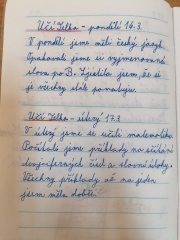 Učí Jelka - pondělí 16.3.
V pondělí jsme měli český jazyk.
Opakovali jsme si vyjmenovaná
slova po B. Zjistila jsem, že si
je všechny stále pamatuju.
Učí Jelka - úterý 17.3.
V úterý jsme se učili matematiku.
Počítala jsme příklady na sčítání
dvojciferných čísel a slovní úlohy.
Všechny příklady až na jeden
jsem měla dobře.